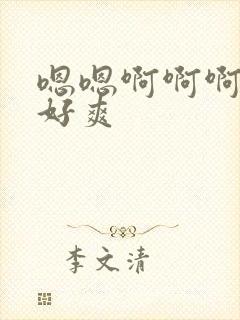 嗯嗯啊啊啊
好爽
李文清